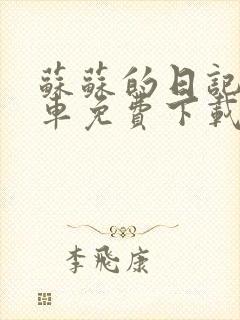 蘇蘇的日記
車免費下載
李飛康